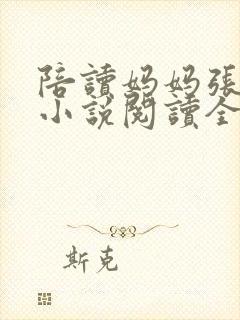 陪讀妈妈張
小說閱讀全
斯克